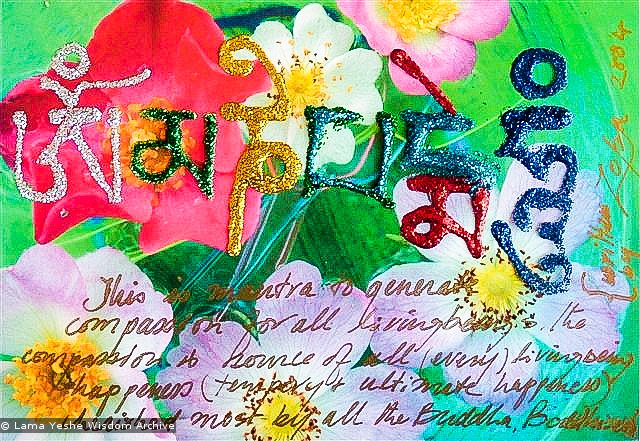 ༀ མ ཎི པ དྨེ ཧཱུྃ
This is mantra to generate
compassion for all livingbeings. the
compassion is source of all (every) livingbeing
happeness (tempory + ultimate happeness)
most by all the Byddha,
Zopa 2004
by
© Lama Yeshe Wisdom Archive